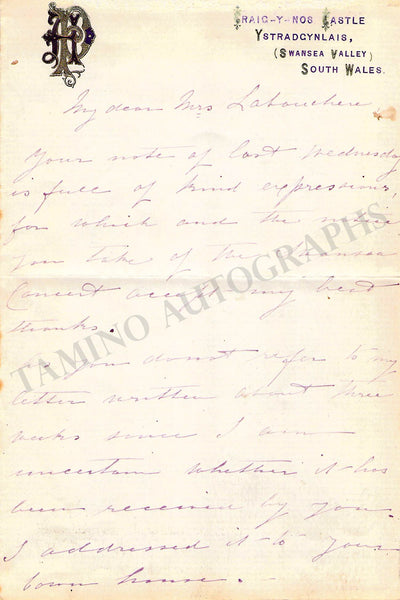 CRAIG-Y-NOS CASTLE
YSTRADGYNLAIS,
(SWANSEA VALLEY)
SOUTH WALES.
My dear Mrs Labouchere
Your note of last Wednesday
is full of kind expressions,
for which and the notice
you take of the Swansea
Concert accept my best
thanks.
As you do not refer to my
letter written about three
weeks since I am
uncertain whether it has
been received by you.
I addressed it to your
town house.
TAMINO AUTOGRAPHS